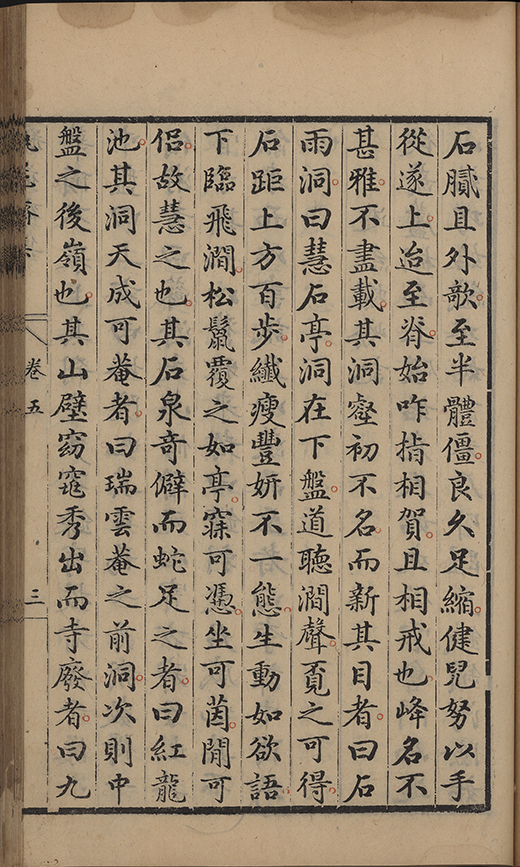 石膩且外欹至半體僵良久足縮健兒努以手
從遂上迨至脊始咋指相賀且相戒也峰名不
甚雅不盡載其洞壑初不名而新其目者曰石
雨洞曰慧石亭洞在下盤道聽澗聲覔之可得
石距上方百步纖瘦豐妍不一態生動如欲語
下臨飛澗松鬣覆之如亭寐可憑坐可茵閒可
侶故慧之也其石泉奇僻而蛇足之者曰紅龍
池其洞天成可菴者曰瑞雲菴之前洞次則中
盤之後嶺也其山壁窈窕秀出而寺廢者曰九
卷五
三